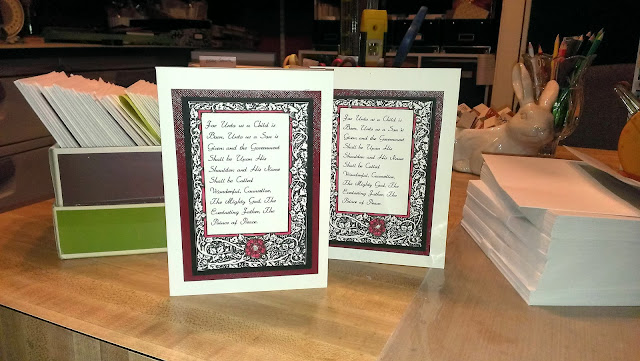 For Unto us a Child is
Born, Unto us a Son is
Given and the Government
Shall be Upon His
Shoulder and His Name
Shall be Called
Wonderful, Counsellor,
The Mighty God, The
Everlasting Father, The
Prince of Peace
For Unto us a Child is
Born, Unto us a Son is
Given and the Government
Shall be Upon His
Shoulder and His Name
Shall be Called
Wonderful, Counsellor,
The Mighty God, The
Everlasting Father, The
Prince of Peace